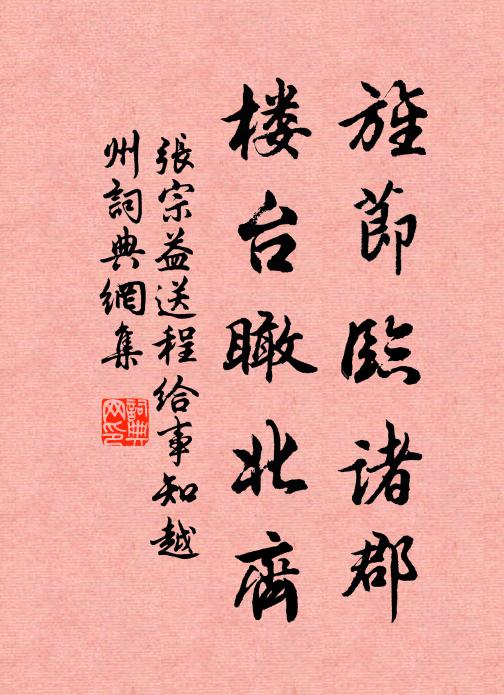 旌節臨諸郡
楼台瞰北齋
張宗益送程給事知越
州詞典網集
詞典网印